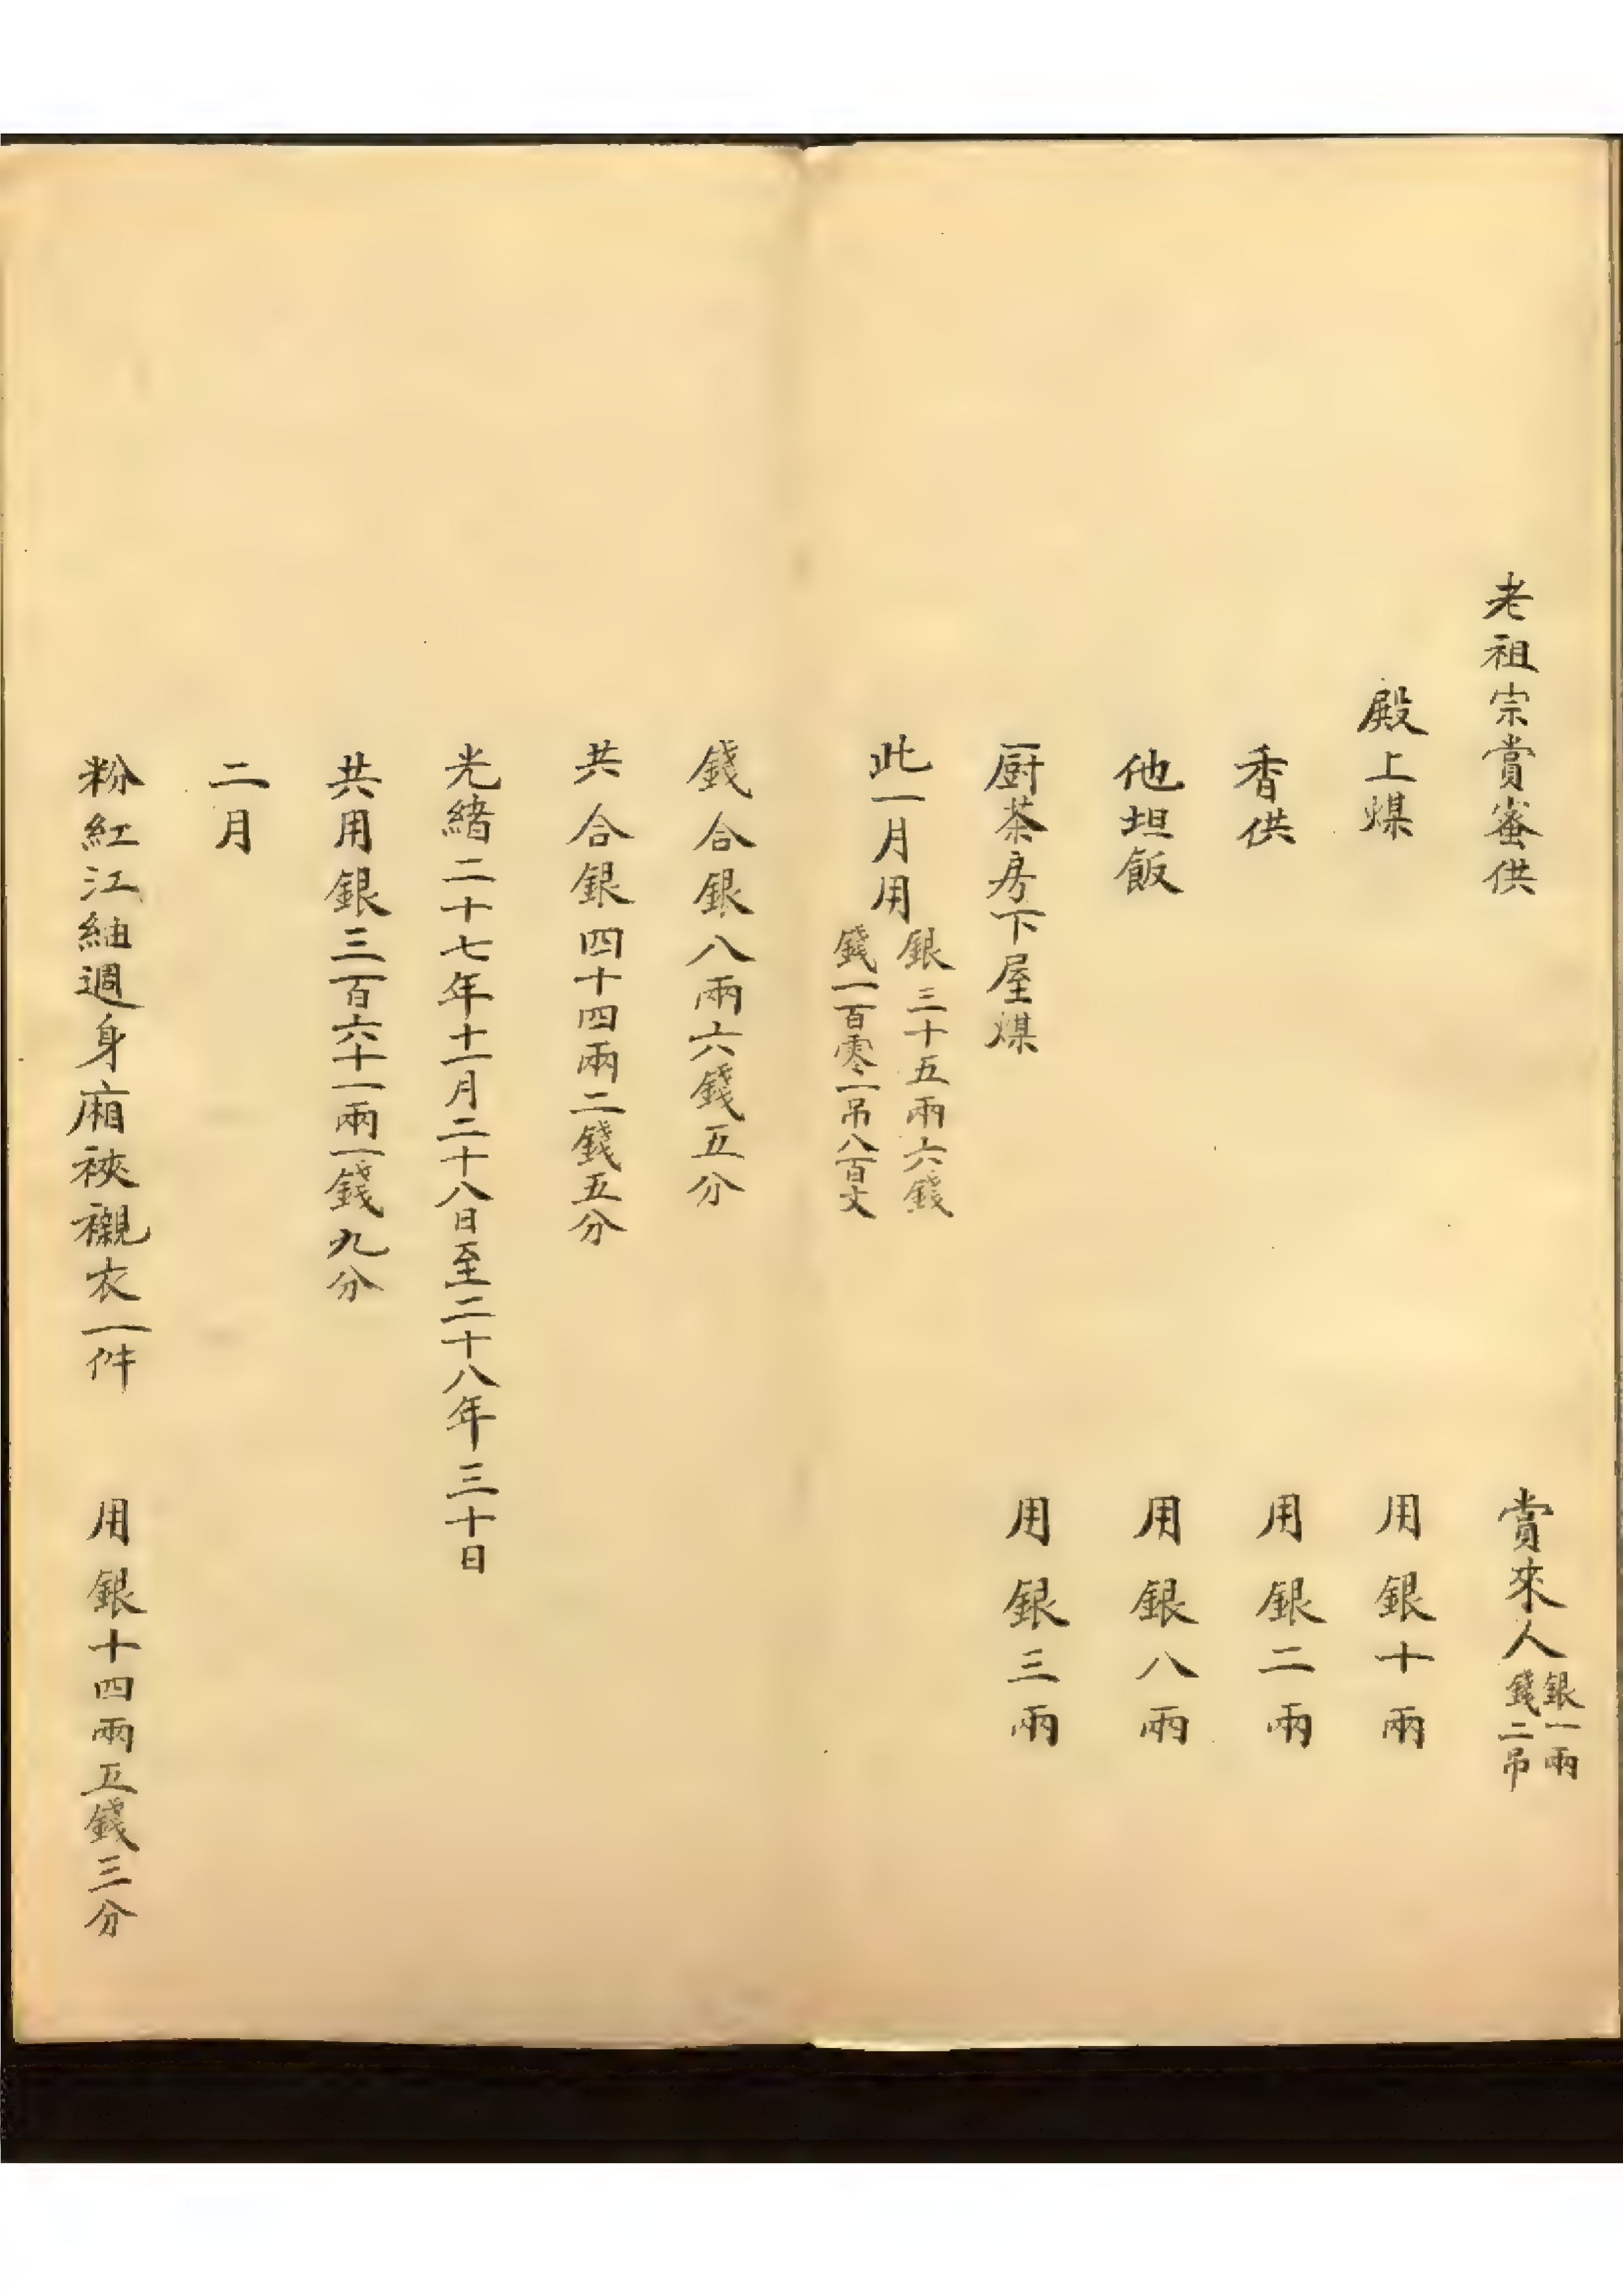 老祖宗賞蜜供 賞來人銀一兩錢二吊
殿上煤 用銀十兩
香供 用銀二兩
他坦飯 用銀八兩
厨茶房下屋煤 用銀三兩
此一月用銀三十五兩六錢錢一百零一吊八百文
錢合銀八兩六錢五分
共合銀四十四兩二錢五分
光緒二十七年十一月二十八日至二十八年三十日
共用銀三百六十一兩一錢九分
二月
粉紅江紬週身廂裌襯衣一件 用銀十四兩五錢三分